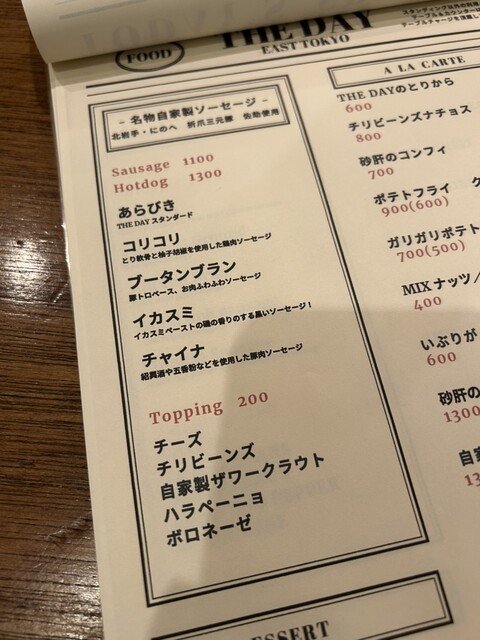 FOOD
THE DAY
EAST TOKYO
- 名物自家製ソーセージ -
北岩手・にのへ 折爪三元豚 佐助使用
Sausage 1100
Hotdog 1300
あらびき
THE DAY スタンダード
コリコリ
とり軟骨と柚子胡椒を使用した鶏肉ソーセージ
ブータンブラン
豚トロベース、お肉ふわふわソーセージ
イカスミ
イカスミペーストの磯の香りのする黒いソーセージ！
チャイナ
紹興酒や五香粉などを使用した豚肉ソーセージ
Topping 200
チーズ
チリビーンズ
自家製ザワークラウト
ハラペーニョ
ボロネーゼ
A LA CARTE
THE DAYのとりから
600
チリビーンズナチョス
800
砂肝のコンフィ
700
ポテトフライ
900(600)
ガリガリポテト
700(500)
MIX ナッツ/
400
いぶりが
600
砂肝の
1300
自家
13
DESSERT